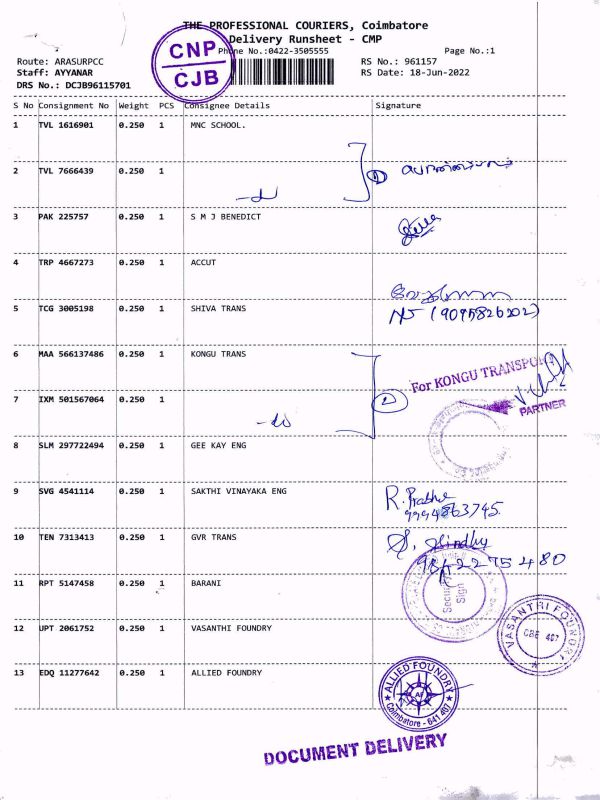 THE PROFESSIONAL COURIERS, Coimbatore
Delivery Runsheet - CMP
Phone No.:0422-3505555
Page No.:1
CNP
CJB
Route: ARASURPCC
RS No.: 961157
Staff: AYYANAR
RS Date: 18-Jun-2022
DRS No.: DCJB96115701
S No Consignment No Weight PCS Consignee Details Signature
1 TVL 1616901 0.250 1 MNC SCHOOL.
2 TVL 7666439 0.250 1
3 PAK 225757 0.250 1 S M J BENEDICT
4 TRP 4667273 0.250 1 ACCUT
5 TCG 3005198 0.250 1 SHIVA TRANS
6 MAA 566137486 0.250 1 KONGU TRANS
For KONGU TRANSPORT
PARTNER
7 IXM 501567064 0.250 1
8 SLM 297722494 0.250 1 GEE KAY ENG
9 SVG 4541114 0.250 1 SAKTHI VINAYAKA ENG
10 TEN 7313413 0.250 1 GVR TRANS
11 RPT 5147458 0.250 1 BARANI
Security
Sign
12 UPT 2061752 0.250 1 VASANTHI FOUNDRY
VASANTRI FOUNDRY
CBE 407
13 EDQ 11277642 0.250 1 ALLIED FOUNDRY
ALLIED FOUNDRY
AF
Coimbatore - 641 407
DOCUMENT DELIVERY